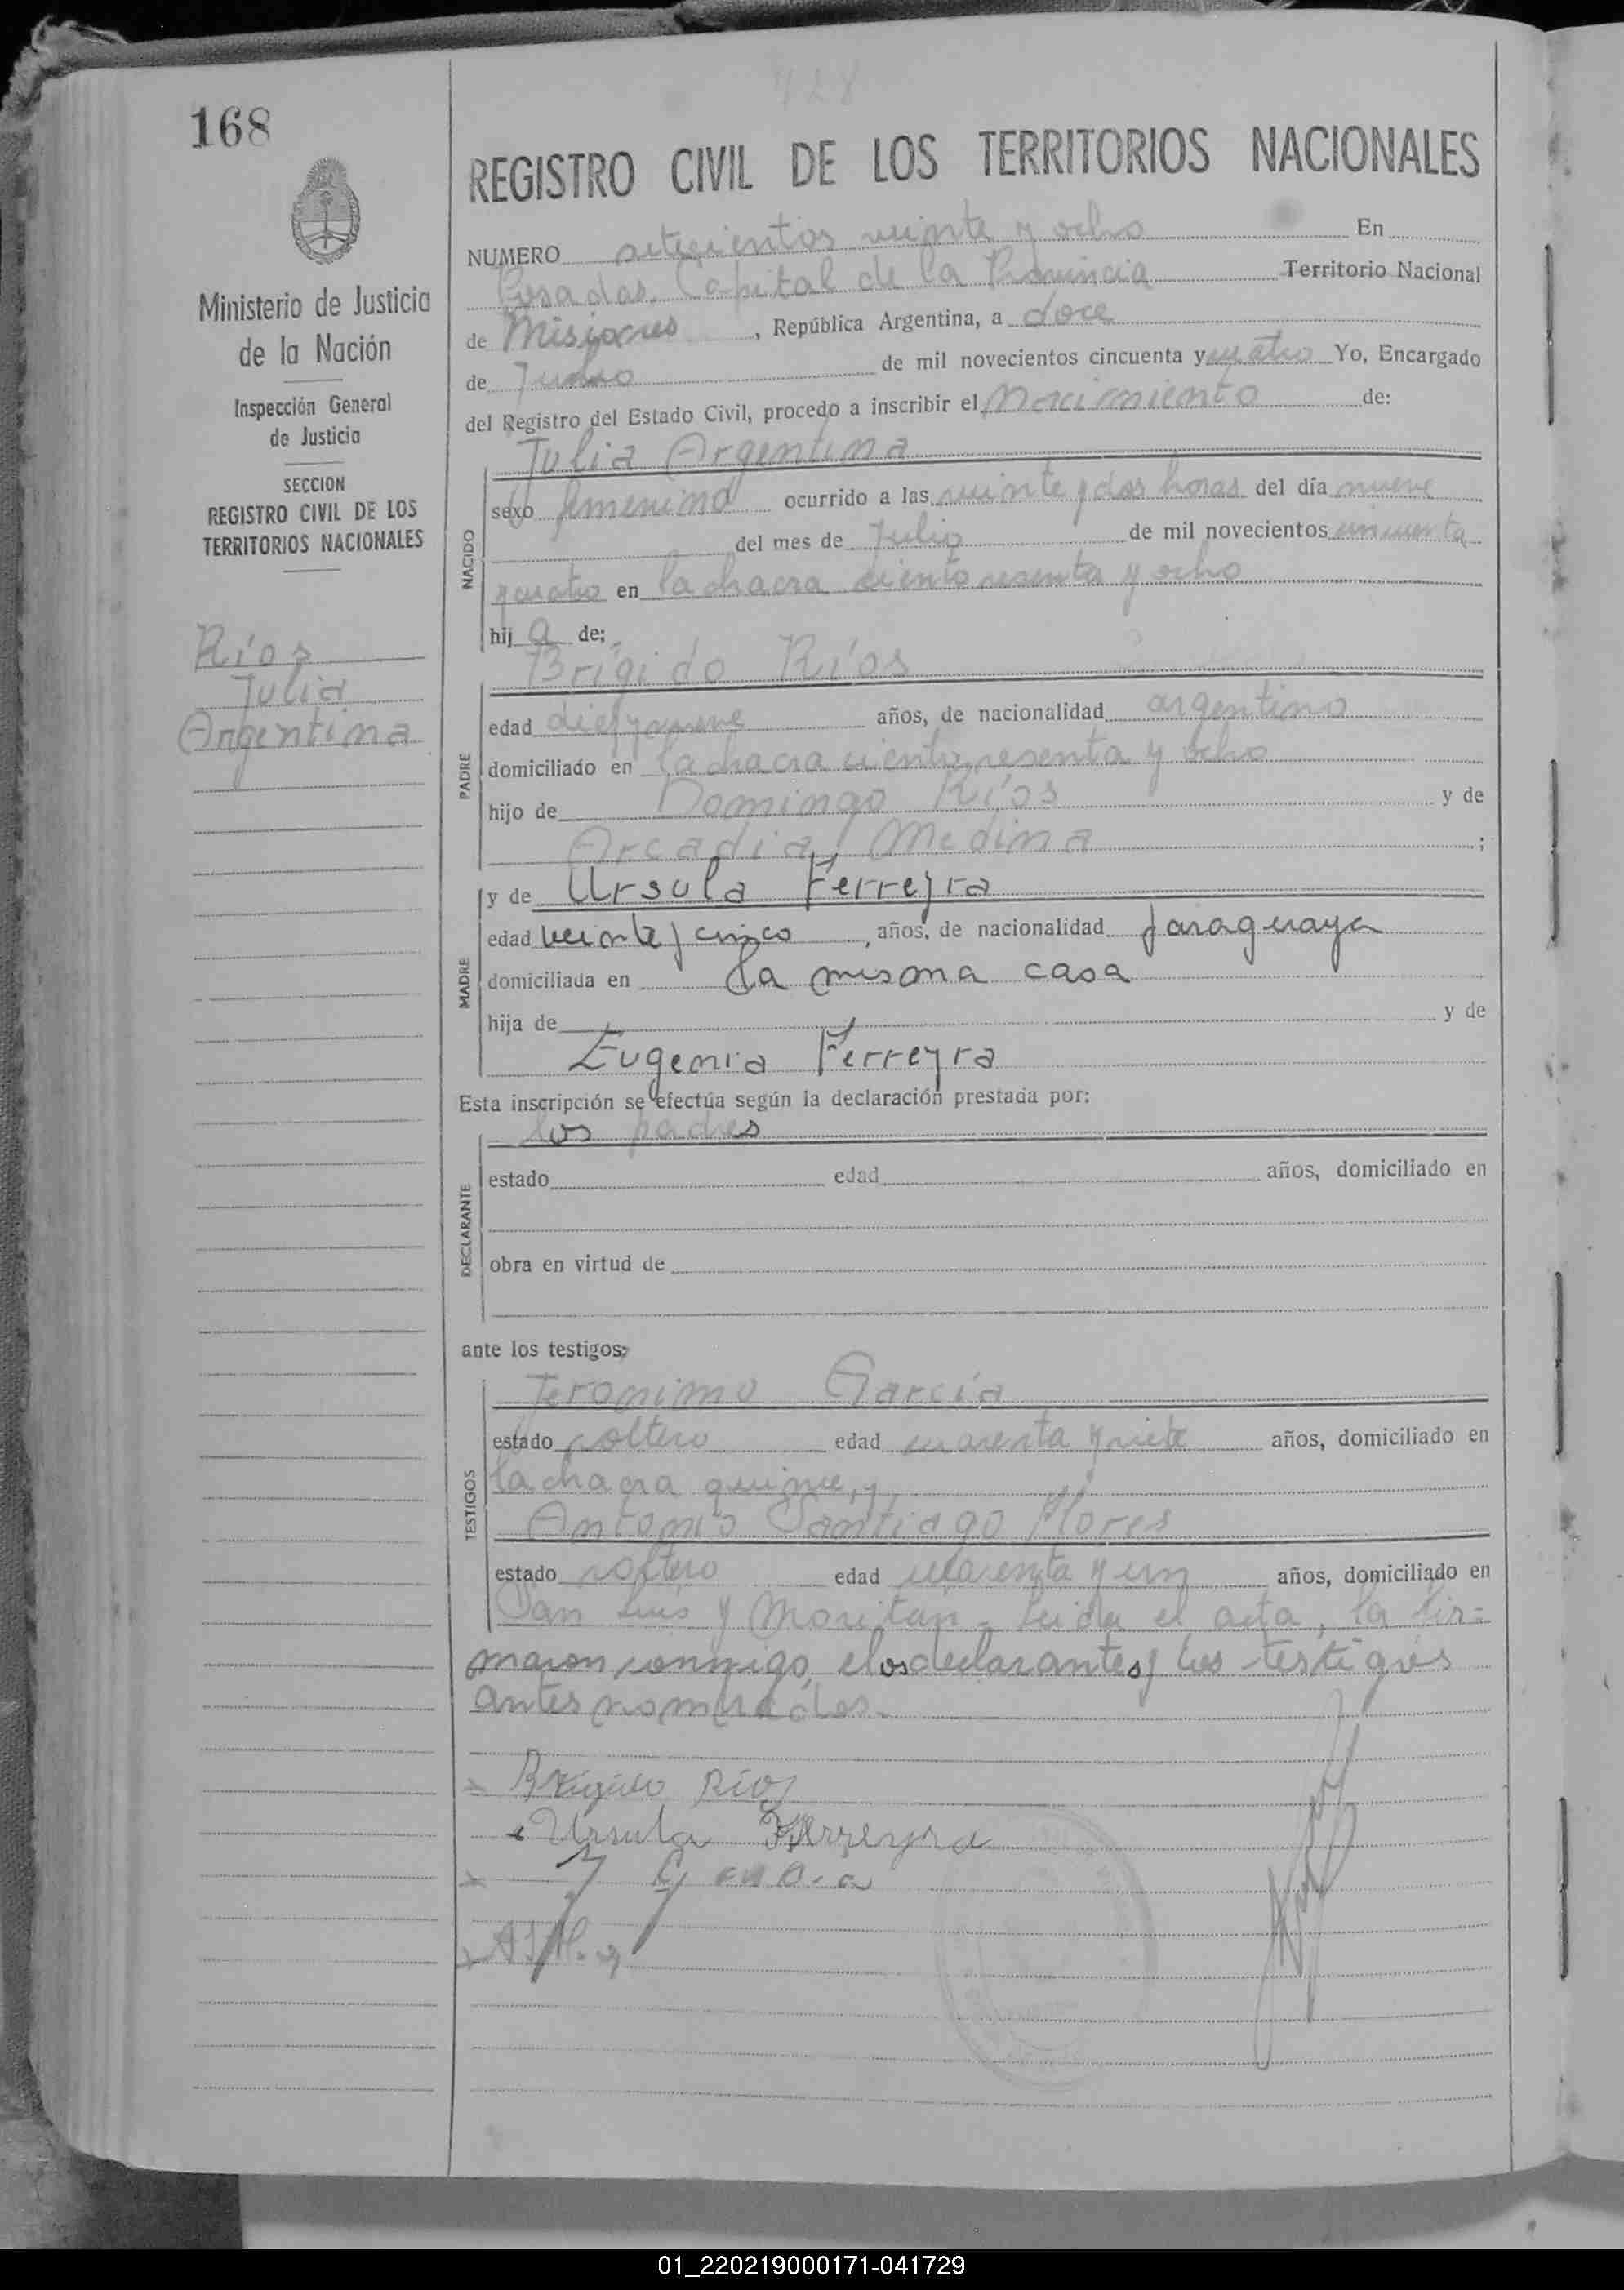 728
168
REGISTRO CIVIL DE LOS TERRITORIOS NACIONALES
Ministerio de Justicia
de la Nación
Inspección General
de Justicia
SECCION
REGISTRO CIVIL DE LOS
TERRITORIOS NACIONALES
Ríos
Julia
Argentina
NUMERO setecientos veinte y ocho En
Posadas, Capital de la Provincia Territorio Nacional
de Misiones, República Argentina, a doce
de Julio de mil novecientos cincuenta y cuatro Yo, Encargado
del Registro del Estado Civil, procedo a inscribir el Nacimiento de:
NACIDO
Julia Argentina
sexo femenino ocurrido a las veinte y dos horas del día nueve
del mes de Julio de mil novecientos cincuenta
y cuatro en la chacra ciento sesenta y ocho
hij a de:
PADRE
Brígido Ríos
edad diez y nueve años, de nacionalidad argentino
domiciliado en la chacra ciento sesenta y ocho
hijo de Domingo Ríos y de
Arcadia Medina ;
MADRE
y de Ursula Ferreyra
edad veinte y cinco, años, de nacionalidad paraguaya
domiciliada en la misma casa
hija de y de
Eugenia Ferreyra
Esta inscripción se efectúa según la declaración prestada por:
DECLARANTE
los padres
estado edad años, domiciliado en
obra en virtud de
ante los testigos:
TESTIGOS
Jeronimo García
estado soltero edad cuarenta y siete años, domiciliado en
la chacra quince, y
Antonio Santiago Flores
estado soltero edad cuarenta y un años, domiciliado en
San Luis y . Leida el acta, la fir=
maron conmigo, los declarantes y los testigos
antes nombrados.
Brigido Ríos
Ursula Ferreyra
J Garcia
01_220219000171-041729